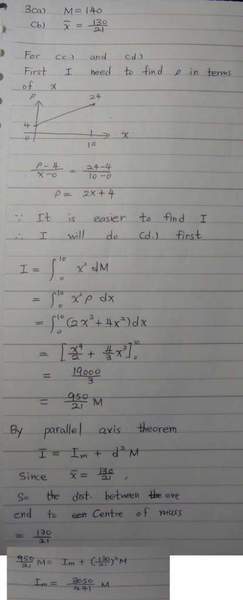 3(a) M = 140
(b) x̄ = 130/21
For (c.) and (d.)
First I need to find ρ in terms
of x
ρ
24
4
0
10
x
ρ-4/x-0 = 24-4/10-0
ρ = 2x+4
∵ It is easier to find I
∴ I will do (d.) first
I = ∫₀¹⁰ x² dM
= ∫₀¹⁰ x² ρ dx
= ∫₀¹⁰ (2x³ + 4x²) dx
= [x⁴/2 + 4/3 x³]₀¹⁰
= 19000/3
= 950/21 M
By parallel axis theorem
I = Iₘ + d²M
Since x̄ = 130/21,
So the dist. between the one
end to Centre of mass
= 130/21
950/21 M = Iₘ + (130/21)² M
Iₘ = 3050/441 M